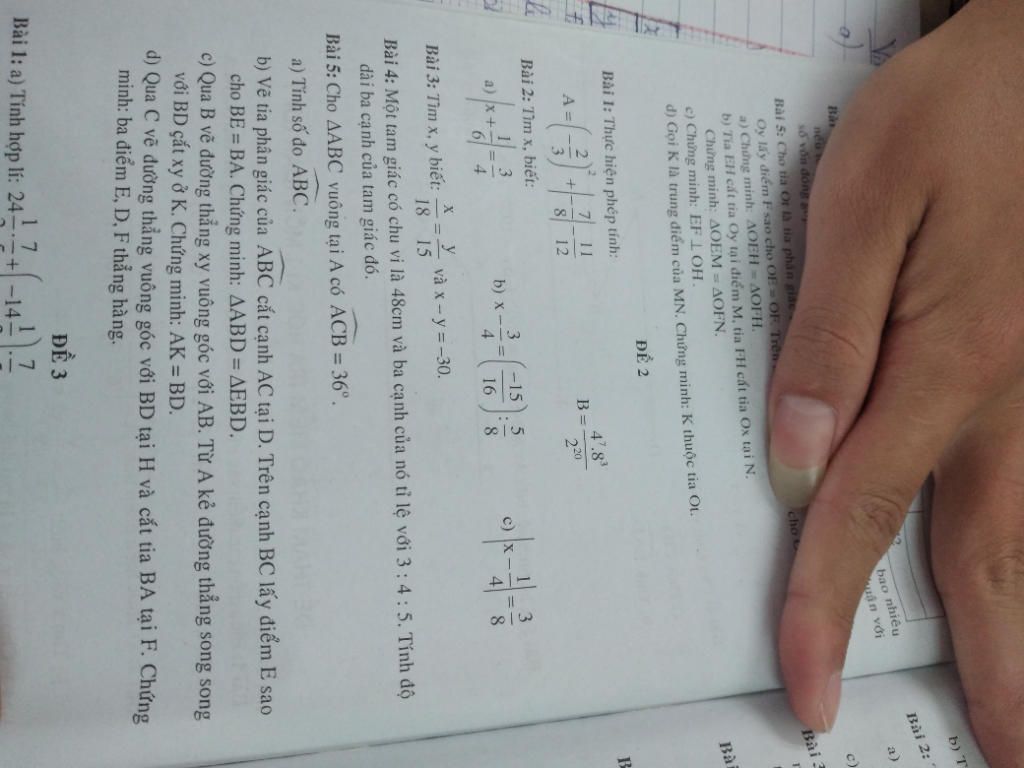 Bài 5: Cho tia Ot là tia phân giác
Oy lấy điểm F sao cho OE = OF. Trên
a) Chứng minh: ΔOEH = ΔOFH.
b) Tia EH cắt tia Oy tại điểm M, tia FH cắt tia Ox tại N.
Chứng minh: ΔOEM = ΔOFN.
c) Chứng minh: EF ⊥ OH.
d) Gọi K là trung điểm của MN. Chứng minh: K thuộc tia Ot.
bao nhiêu
ĐỀ 2
Bài 1: Thực hiện phép tính:
A = (-2/3)² + |-7/8| - 11/12 B = 4⁷.8³/2²⁰
Bài 2: Tìm x, biết:
a) |x + 1/6| = 3/4 b) x - 3/4 = (-15/16) : 5/8 c) |x - 1/4| = 3/8
Bài 3: Tìm x, y biết: x/18 = y/15 và x – y = –30.
Bài 4: Một tam giác có chu vi là 48cm và ba cạnh của nó tỉ lệ với 3 : 4 : 5. Tính độ
dài ba cạnh của tam giác đó.
Bài 5: Cho ΔABC vuông tại A có ACB = 36°.
a) Tính số đo ABC.
b) Vẽ tia phân giác của ABC cắt cạnh AC tại D. Trên cạnh BC lấy điểm E sao
cho BE = BA. Chứng minh: ΔABD = ΔEBD.
c) Qua B vẽ đường thẳng xy vuông góc với AB. Từ A kẻ đường thẳng song song
với BD cắt xy ở K. Chứng minh: AK = BD.
d) Qua C vẽ đường thẳng vuông góc với BD tại H và cắt tia BA tại F. Chứng
minh: ba điểm E, D, F thẳng hàng.
ĐỀ 3
Bài 1: a) Tính hợp lí: 24
b) T
Bài 2:
a)
c)
Bài 3
Bài